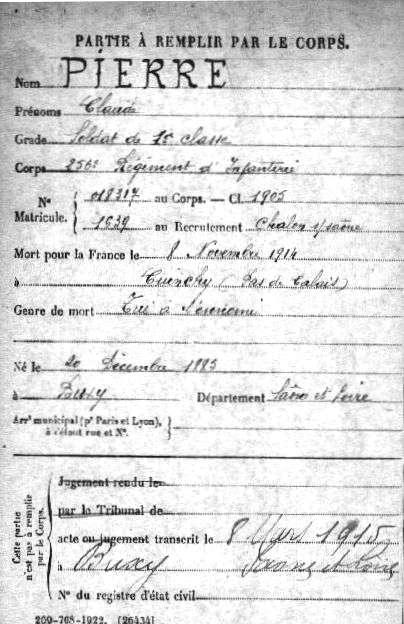 PARTIE À REMPLIR PAR LE CORPS.
Nom PIERRE
Prénoms Claude
Grade Soldat de 1e classe
Corps 256e Régiment d'Infanterie
Nº Matricule. { 018317 au Corps. — Cl. 1905
1639 au Recrutement Chalon s/saône
Mort pour la France le 8 Novembre 1914
à Cuinchy (Pas de Calais)
Genre de mort Tué à l'ennemi
Né le 20 Décembre 1885
à Buxy Département Saône et Loire
Arrt municipal (pr Paris et Lyon), à défaut rue et Nº. }
Cette partie n'est pas à remplir par le Corps.
Jugement rendu le
par le Tribunal de
acte ou jugement transcrit le 8 1915
à Buxy Saone et Loire
Nº du registre d'état civil
209-708-1922. [26434]